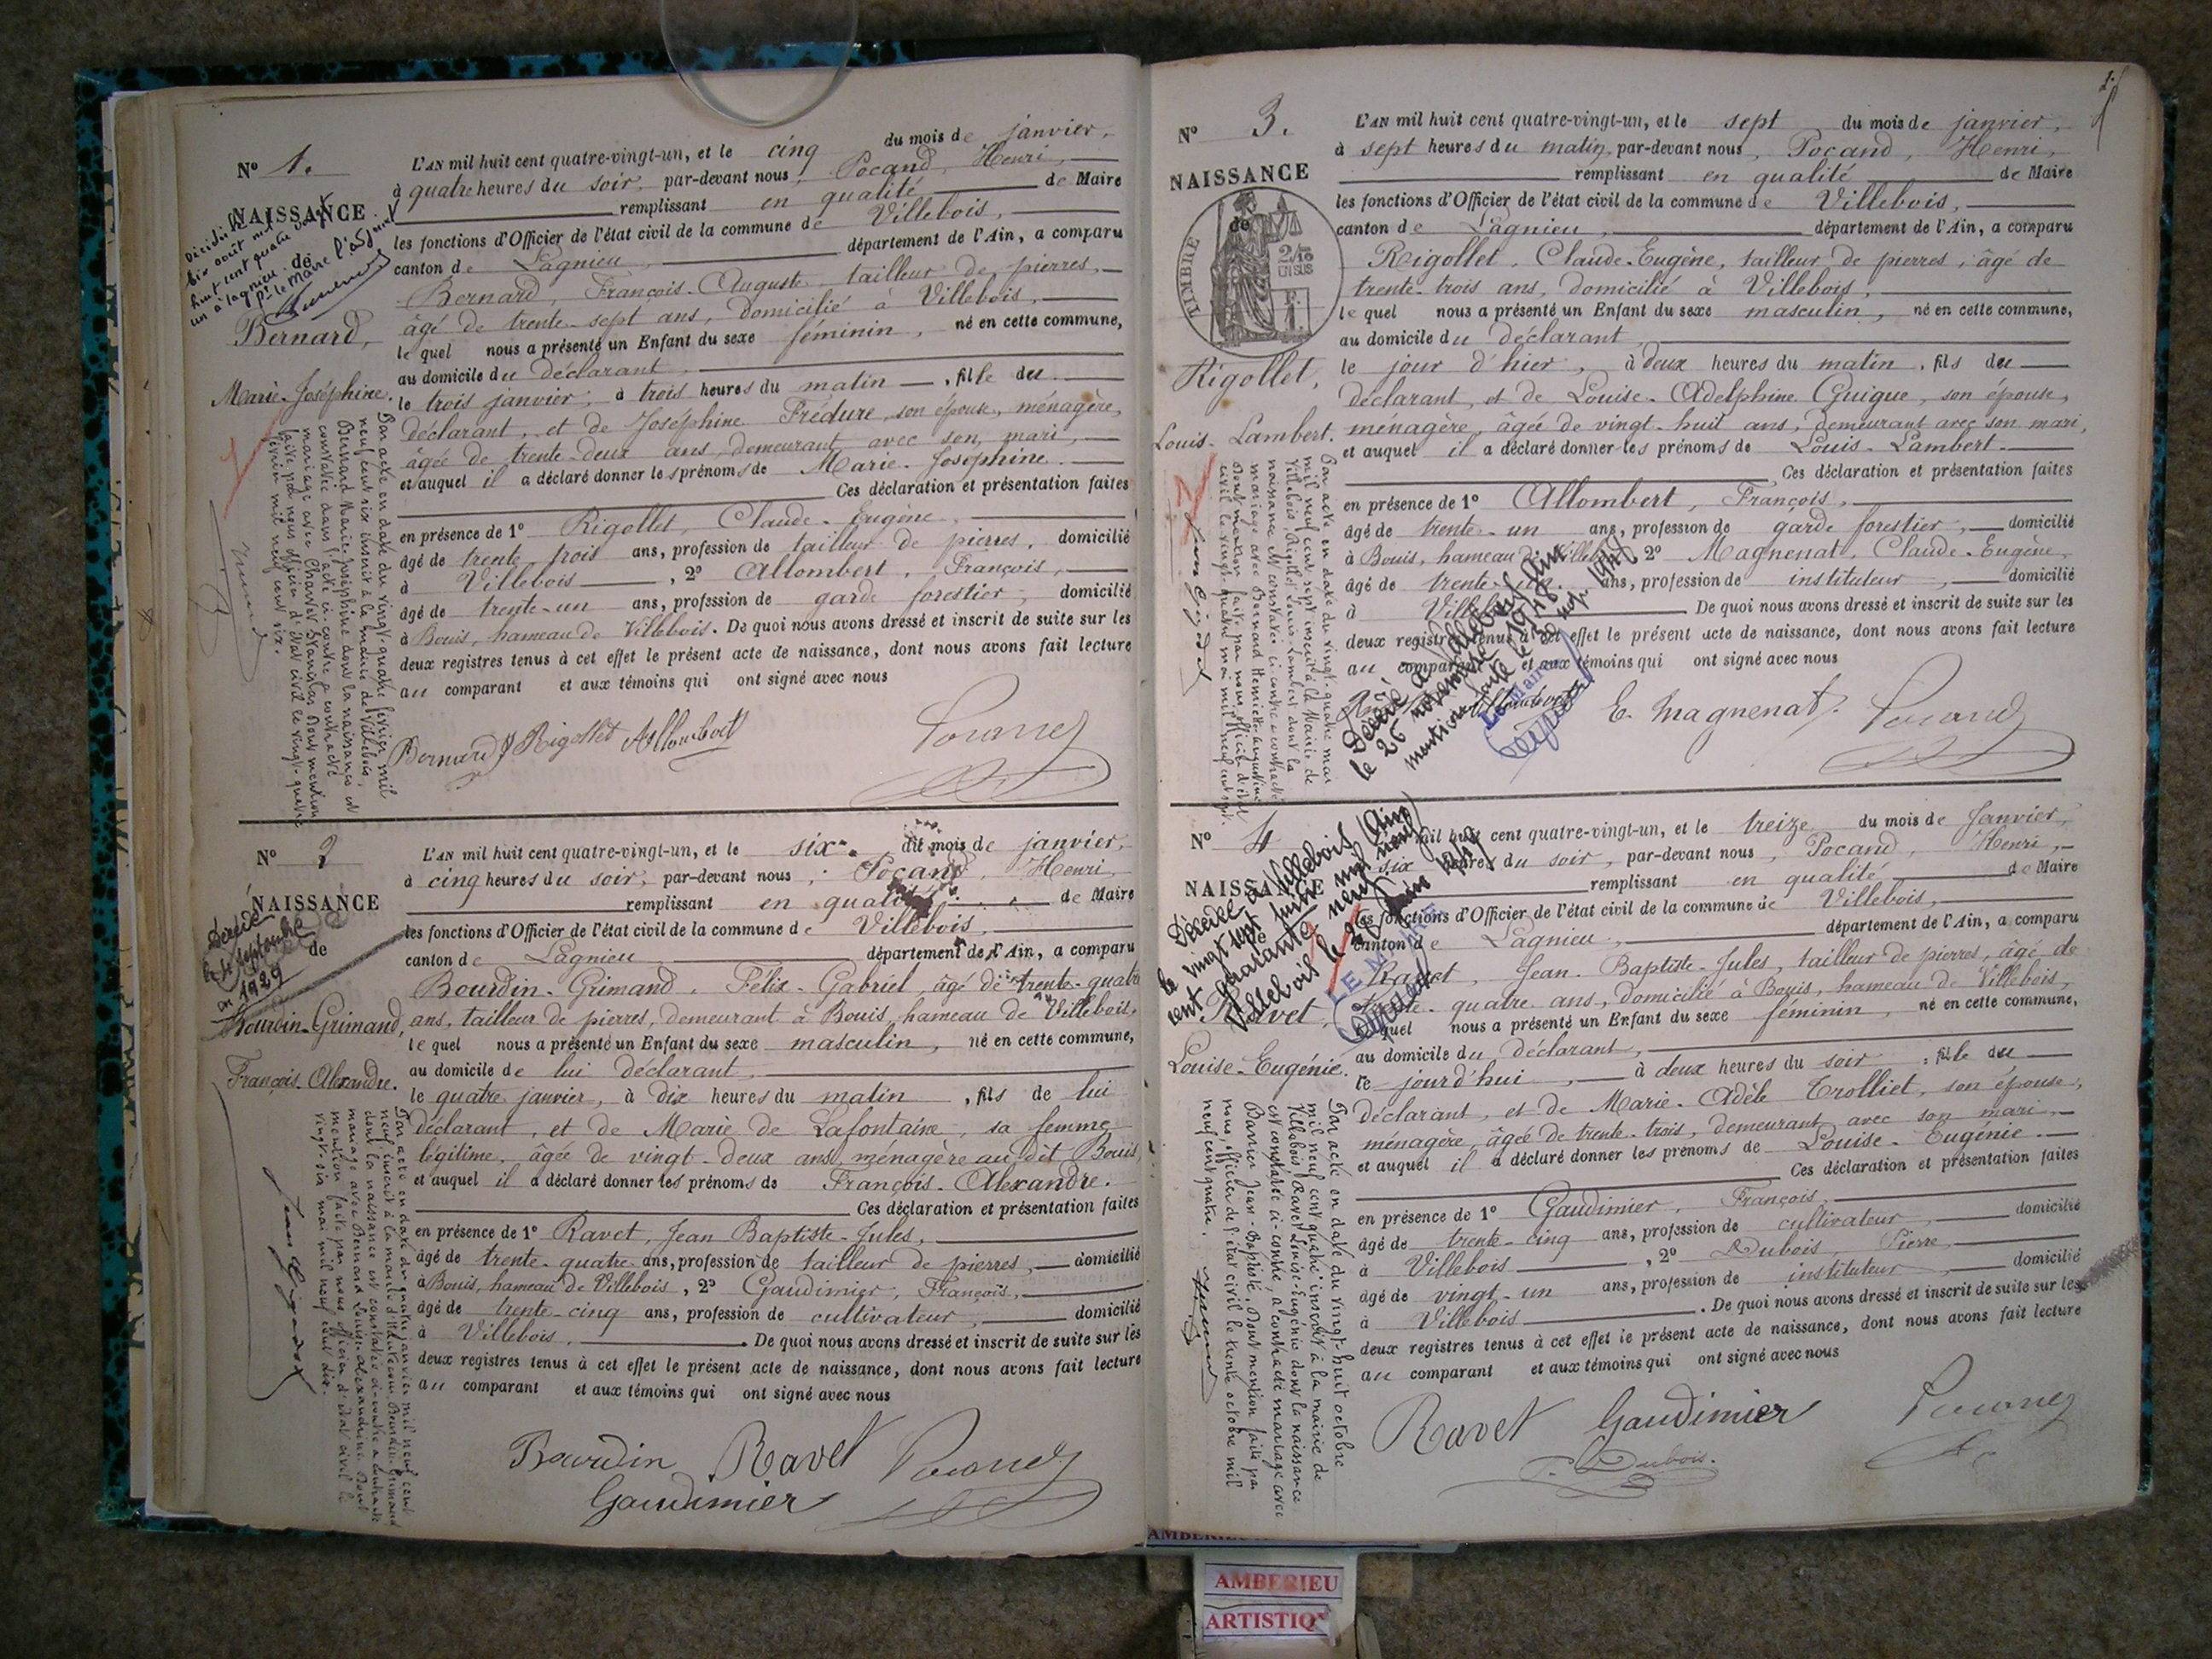 N° 1.
NAISSANCE
de
Bernard,
Marie-Joséphine.
L'AN mil huit cent quatre-vingt-un, et le cinq du mois de janvier,
à quatre heures du soir, par-devant nous, Pocand, Henri,
remplissant en qualité de Maire
les fonctions d'Officier de l'état civil de la commune de Villebois,
canton de Lagnieu, département de l'Ain, a comparu
Bernard, François-Auguste, tailleur de pierres,
âgé de trente-sept ans, domicilié à Villebois,
lequel nous a présenté un Enfant du sexe féminin, né en cette commune,
au domicile du déclarant,
le trois janvier, à trois heures du matin, fille du
déclarant, et de Joséphine Frédure, son épouse, ménagère,
âgée de trente-deux ans, demeurant avec son mari,
et auquel il a déclaré donner les prénoms de Marie-Joséphine.
Ces déclaration et présentation faites
en présence de 1° Rigollet, Claude-Eugène,
âgé de trente trois ans, profession de tailleur de pierres, domicilié
à Villebois, 2° Allombert, François,
âgé de trente-un ans, profession de garde forestier, domicilié
à Bouis, hameau de Villebois. De quoi nous avons dressé et inscrit de suite sur les
deux registres tenus à cet effet le présent acte de naissance, dont nous avons fait lecture
au comparant et aux témoins qui ont signé avec nous
Bernard Rigollet Allombert Pocand
Par acte en date du vingt-quatre février mil
neuf cent six inscrit à la mairie de Villebois,
Bernard Marie-Joséphine dont la naissance est
constatée dans l'acte ci-contre a contracté
mariage avec Charvet Stanislas dont mention
faite par nous officier d'état civil le vingt-quatre
février mil neuf cent six.
N° 2
NAISSANCE
de
Décédé
septembre
1929
Bourdin-Grimand,
François-Alexandre.
L'AN mil huit cent quatre-vingt-un, et le six du mois de janvier,
à cinq heures du soir, par-devant nous, Pocand, Henri,
remplissant en qualité de Maire
les fonctions d'Officier de l'état civil de la commune de Villebois,
canton de Lagnieu, département de l'Ain, a comparu
Bourdin-Grimand, Félix-Gabriel, âgé de trente-quatre
ans, tailleur de pierres, demeurant à Bouis, hameau de Villebois,
lequel nous a présenté un Enfant du sexe masculin, né en cette commune,
au domicile de lui déclarant,
le quatre janvier, à dix heures du matin, fils de lui
déclarant, et de Marie de Lafontaine, sa femme
légitime, âgée de vingt-deux ans, ménagère au dit Bouis,
et auquel il a déclaré donner les prénoms de François-Alexandre.
Ces déclaration et présentation faites
en présence de 1° Ravet, Jean Baptiste-Jules,
âgé de trente-quatre ans, profession de tailleur de pierres, domicilié
à Bouis, hameau de Villebois, 2° Gaudimier, François,
âgé de trente-cinq ans, profession de cultivateur, domicilié
à Villebois. De quoi nous avons dressé et inscrit de suite sur les
deux registres tenus à cet effet le présent acte de naissance, dont nous avons fait lecture
au comparant et aux témoins qui ont signé avec nous
Bourdin Ravet Pocand
Gaudimier
Par acte en date du quatre janvier mil neuf cent
dont la naissance est constatée ci-contre a contracté
mariage avec Bernard Louise-Alexandrine. Dont
mention faite par nous officier d'état civil le
vingt-six mai mil neuf cent dix.
1.
N° 3.
NAISSANCE
de
TIMBRE
2/10
EN SUS
Rigollet,
Louis-Lambert.
L'AN mil huit cent quatre-vingt-un, et le sept du mois de janvier,
à sept heures du matin, par-devant nous, Pocand, Henri,
remplissant en qualité de Maire
les fonctions d'Officier de l'état civil de la commune de Villebois,
canton de Lagnieu, département de l'Ain, a comparu
Rigollet, Claude-Eugène, tailleur de pierres, âgé de
trente-trois ans, domicilié à Villebois,
lequel nous a présenté un Enfant du sexe masculin, né en cette commune,
au domicile du déclarant,
le jour d'hier, à deux heures du matin, fils du
déclarant, et de Louise-Adelphine Guigue, son épouse,
ménagère, âgée de vingt-huit ans, demeurant avec son mari,
et auquel il a déclaré donner les prénoms de Louis-Lambert.
Ces déclaration et présentation faites
en présence de 1° Allombert, François,
âgé de trente-un ans, profession de garde forestier, domicilié
à Bouis, hameau de Villebois, 2° Magnenat, Claude-Eugène,
âgé de trente-un ans, profession de instituteur, domicilié
à Villebois. De quoi nous avons dressé et inscrit de suite sur les
deux registres tenus à cet effet le présent acte de naissance, dont nous avons fait lecture
au comparant et aux témoins qui ont signé avec nous
E. Magnenat. Pocand
Décédé à Villebois Ain
le 26 novembre 1948
Le Maire
Par acte en date du vingt-quatre mai
mil neuf cent sept inscrit à la Mairie de
Villebois, Rigollet Louis-Lambert dont la
naissance est constatée ci-contre a contracté
mariage avec Bernard Henriette-Augustine
dont mention faite par nous officier d'état
civil le vingt-quatre mai mil neuf cent sept.
N° 4
NAISSANCE
de
Ravet,
Louise-Eugénie.
Décédée à Villebois (Ain)
le vingt sept juin mil neuf
cent quarante neuf
Villebois le 28 juin 1949
LE MAIRE
mil huit cent quatre-vingt-un, et le treize du mois de Janvier,
six heures du soir, par-devant nous, Pocand, Henri,
remplissant en qualité de Maire
les fonctions d'Officier de l'état civil de la commune de Villebois,
canton de Lagnieu, département de l'Ain, a comparu
Ravet, Jean-Baptiste-Jules, tailleur de pierres, âgé de
trente-quatre ans, domicilié à Bouis, hameau de Villebois,
lequel nous a présenté un Enfant du sexe féminin, né en cette commune,
au domicile du déclarant,
le jourd'hui, à deux heures du soir, fille du
déclarant, et de Marie-Adèle Trolliet, son épouse,
ménagère, âgée de trente-trois, demeurant avec son mari,
et auquel il a déclaré donner les prénoms de Louise-Eugénie.
Ces déclaration et présentation faites
en présence de 1° Gaudimier, François,
âgé de trente-cinq ans, profession de cultivateur, domicilié
à Villebois, 2° Dubois, Pierre,
âgé de vingt-un ans, profession de instituteur, domicilié
à Villebois. De quoi nous avons dressé et inscrit de suite sur les
deux registres tenus à cet effet le présent acte de naissance, dont nous avons fait lecture
au comparant et aux témoins qui ont signé avec nous
Ravet Gaudimier Pocand
P. Dubois.
Par acte en date du vingt-huit octobre
mil neuf cent quatre inscrit à la mairie de
Villebois Ravet Louise-Eugénie dont la naissance
est constatée ci-contre, a contracté mariage avec
Jean-Baptiste, dont mention faite par
nous, officier de l'état civil le trente octobre mil
neuf cent quatre.
AMBERIEU
ARTISTIQ